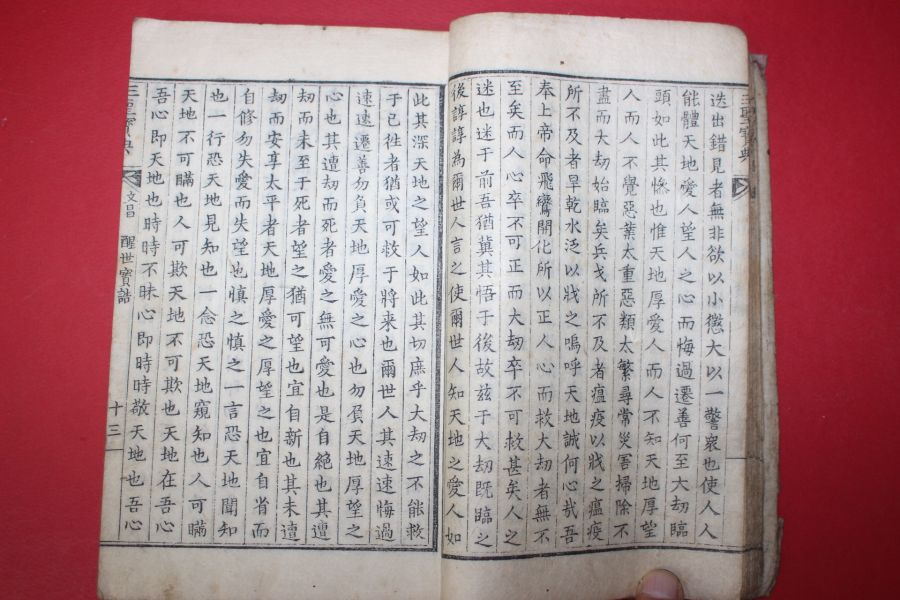 迭出錯見者無非欲以小懲大以一警衆也使人人
能體天地愛人望人之心而悔過遷善何至大劫臨
頭如此其慘也惟天地厚愛人而人不知天地厚望
人而人不覺惡業太重惡類太繁尋常災害掃除不
盡而大劫始臨矣兵戈所不及者瘟疫以戕之瘟疫
所不及者旱乾水泛以戕之嗚呼天地誠何心哉吾
奉上帝命飛鸞開化所以正人心而救大劫者無不
至矣而人心卒不可正而大劫卒不可救甚矣人之
迷也迷于前吾猶冀其悟于後故兹于大劫既臨之
後諄諄為爾世人言之使爾世人知天地之愛人如
此其深天地之望人如此其切庶乎大劫之不能救
于已徃者猶或可救于將来也爾世人其速速悔過
速速遷善勿負天地厚愛之心也勿負天地厚望之
心也其遭劫而死者愛之無可愛也是自絶也其遭
劫而未至于死者望之猶可望也宜自新也其未遭
劫而安享太平者天地厚愛之厚望之也宜自省而
自修勿失愛而失望也慎之慎之一言恐天地聞知
也一行恐天地見知也一念恐天地窺知也人可瞞
天地不可瞞也人可欺天地不可欺也天地在吾心
吾心即天地也時時不昧心即時時敬天地也吾心
三聖寶典 文昌 醒世寶誥 十三